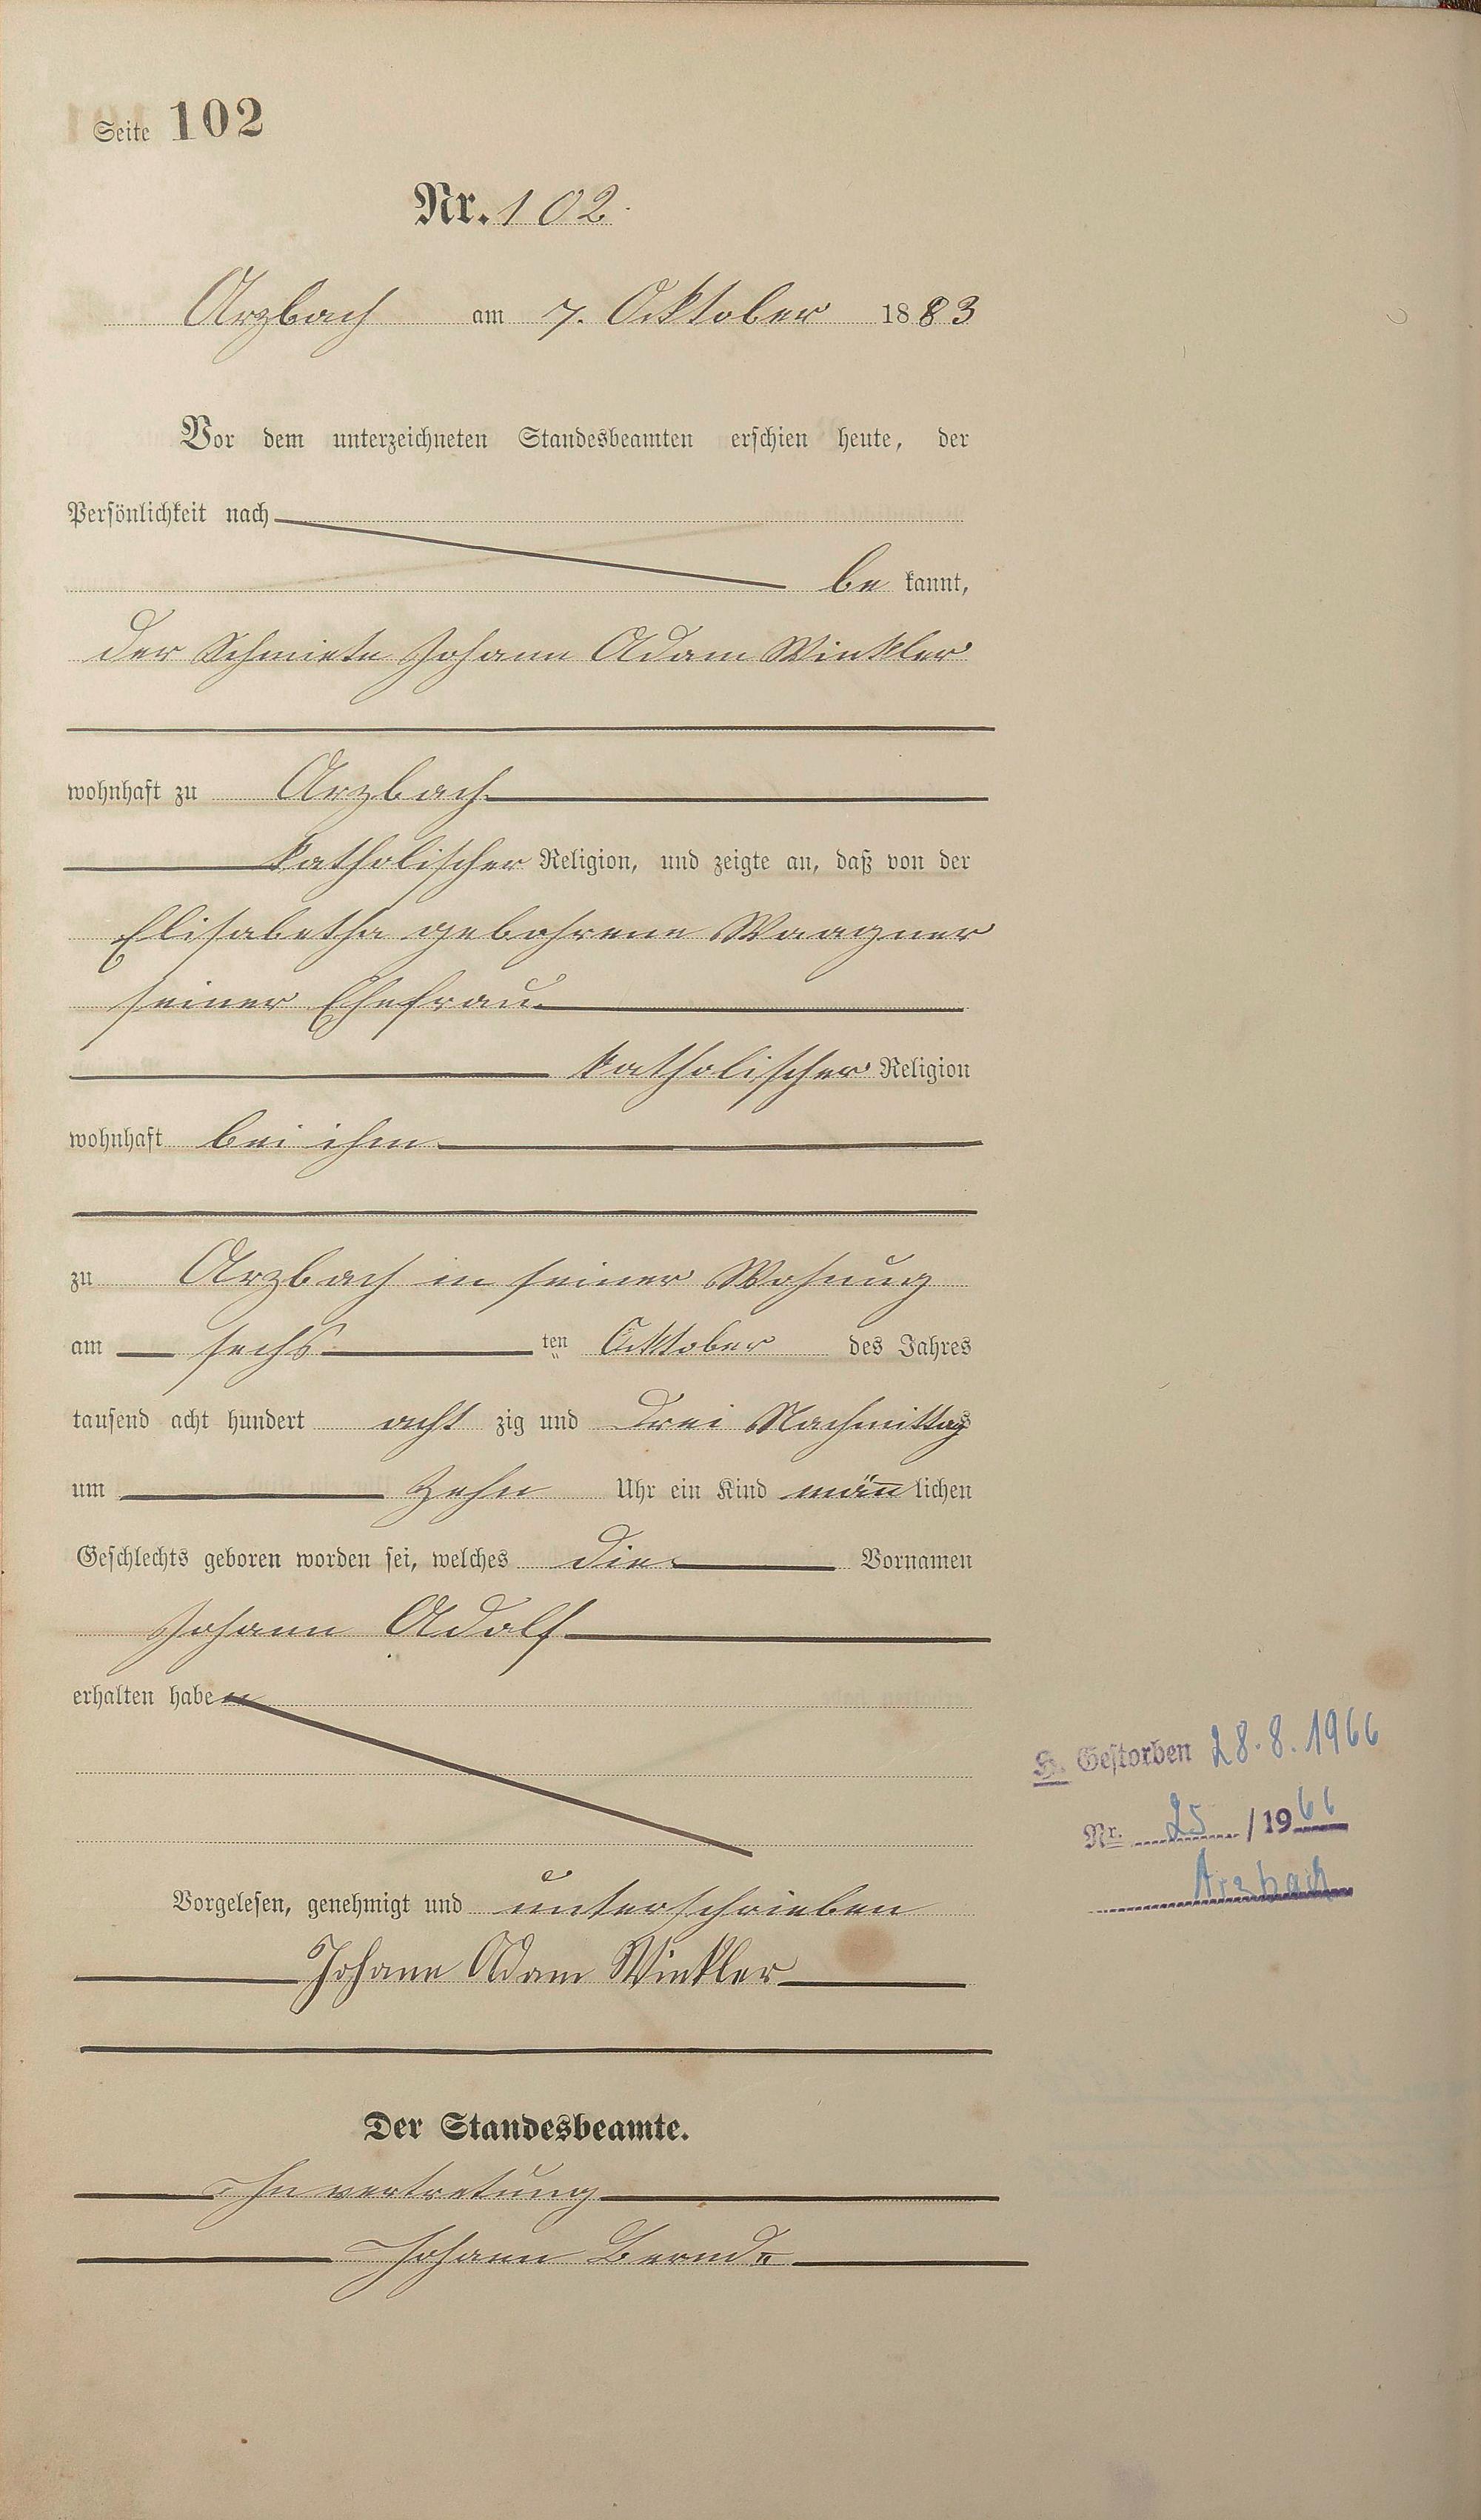 Seite 102
Nr. 102.
Arzbach am 7. Ocktober 1883
Vor dem unterzeichneten Standesbeamten erschien heute, der
Persönlichkeit nach
be kannt,
der Schmiete Johann Adam Winkler
wohnhaft zu Arzbach
katholischer Religion, und zeigte an, daß von der
Elisabetha gebohrene Waagner
seiner Ehefrau
katholischer Religion
wohnhaft bei ihm
zu Arzbach in seiner Wohnung
am sechs ten Ocktober des Jahres
tausend acht hundert acht zig und drei Nachmittags
um zehn Uhr ein Kind män̅lichen
Geschlechts geboren worden sei, welches die Vornamen
Johann Adolf
erhalten habe
Vorgelesen, genehmigt und unterschrieben
Johann Adam Winkler
Der Standesbeamte.
In vertretung
Johann
H. Gestorben 28.8.1966
Nr. 25 / 1966
Arzbach